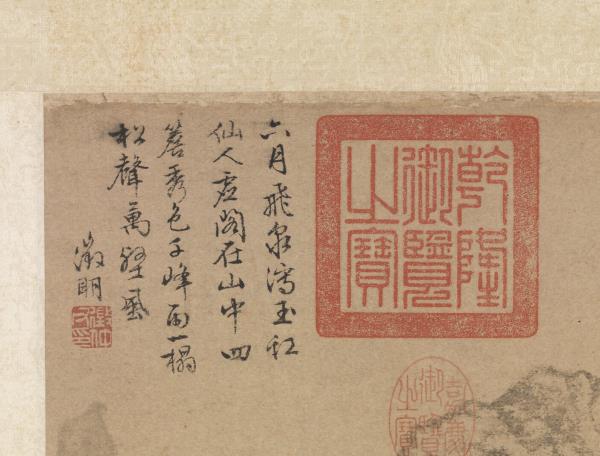 六月飛泉瀉玉虹
仙人虛閣在山中四
簷秀色千峰雨一榻
松聲萬壑風
徵明
乾隆
御覽
之寶
御覽
之寶